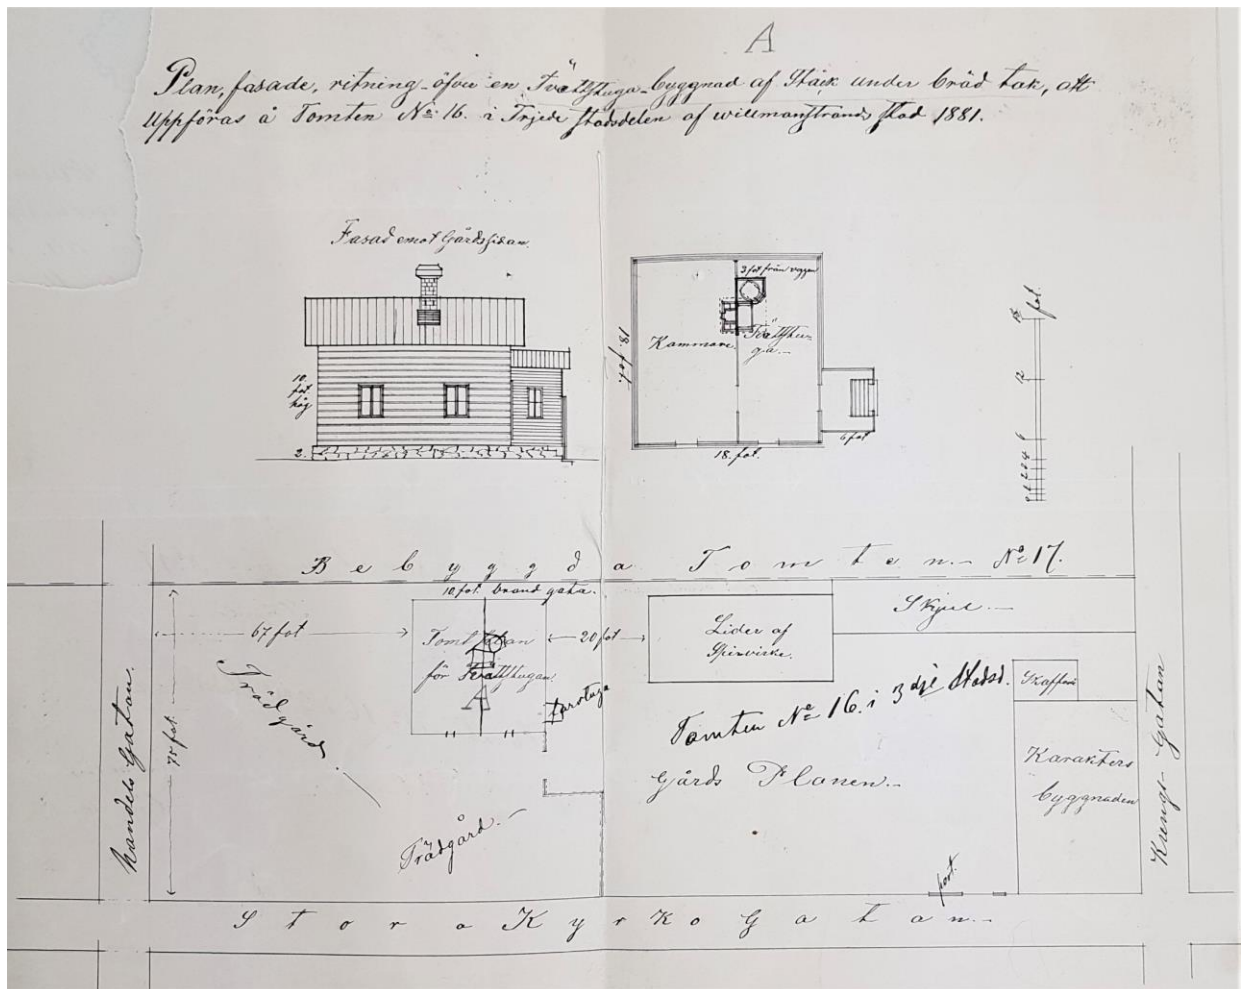 A
Plan, fasade, ritning öfver en Tvättstuga byggnad af Ståck under bräd tak, att
Uppföras å Tomten No 16. i Trjede stadsdelen af willmanstrands stad 1881.
Fasad emot Gårdssidan.
3 fot från väggen
fot.
18
12
6
4
2
Kammare.
Tvättstu-
ga.-
18. fot.
10.
fot
hög
2.
6 fot
18. fot.
Bebyggda Tomten.- No 17.
10. fot. brand gata.
67 fot
Tomt
för Tvättstugan
20 fot
Lider af
Skjul.-
Skafferi
Trädgård.-
75 fot.
farstuga
Tomten No 16. i 3dje Stadsd.
Gårds Planen.-
Karakters
byggnaden
Handels Gatan.
Kungs-Gatan
Trädgård.-
port.
Stora Kyrko Gatan.-